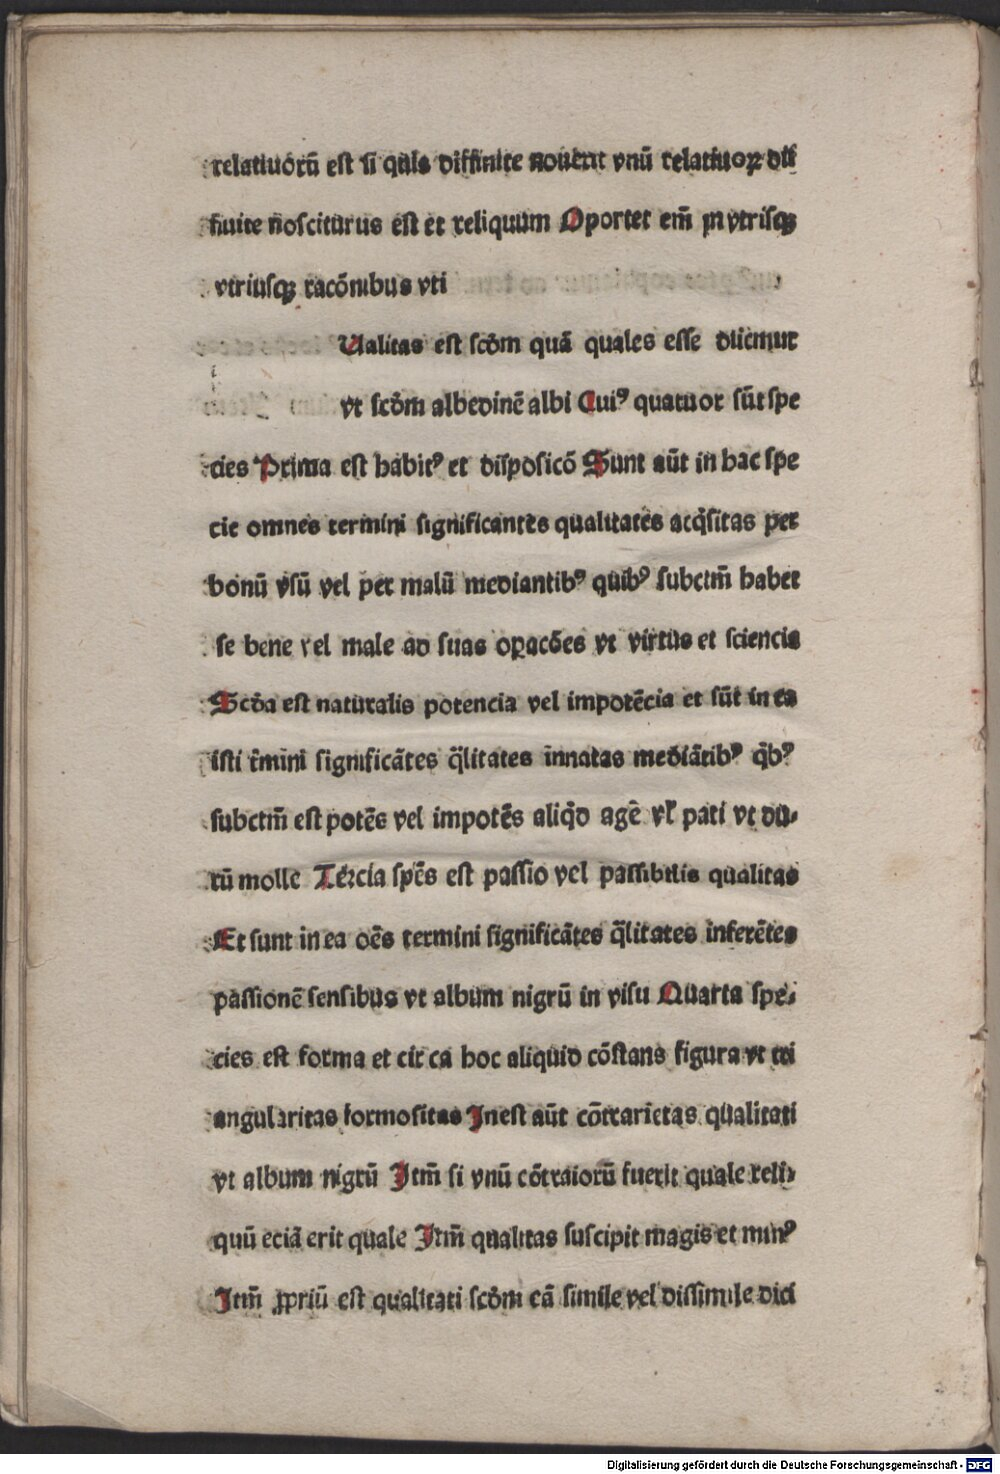 relatiuorū est si quis diffinite nouerit vnū relatiuoꝝ dif
finite nosciturus est et reliquum Oportet em̄ in vtrisqꝫ
vtriusqꝫ racōnibus vti
Ualitas est scd̄m quā quales esse dicimur
vt scd̄m albedinē albi Cuiꝰ quatuor sūt spe
cies Prima est habitꝰ et disposicō Sunt aūt in hac spe
cie omnes termini significantes qualitates acq̄sitas per
bonū vsū vel per malū mediantibꝰ quibꝰ subctm̄ habet
se bene vel male ad suas oꝑacōes vt virtus et sciencia
Scd̄a est naturalis potencia vel impotēcia et sūt in ea
isti t̄mini significātes q̄litates innatas mediātibꝰ q̄bꝰ
subctm̄ est potēs vel impotēs aliq̄d agē vl̓ pati vt du⸗
rū molle Tercia spēs est passio vel passibilis qualitas
Et sunt in ea oēs termini significātes q̄litates inferētes
passionē sensibus vt album nigrū in visu Quarta spe⸗
cies est forma et circa hoc aliquid cōstans figura vt tri
angularitas formositas Inest aūt cōtrarietas qualitati
vt album nigrū Itm̄ si vnū cōtraiorū fuerit quale reli⸗
quū eciā erit quale Itm̄ qualitas suscipit magis et minꝰ
Itm̄ ꝓpriū est qualitati scd̄m eā simile vel dissimile dici
Digitalisierung gefördert durch die Deutsche Forschungsgemeinschaft - DFG